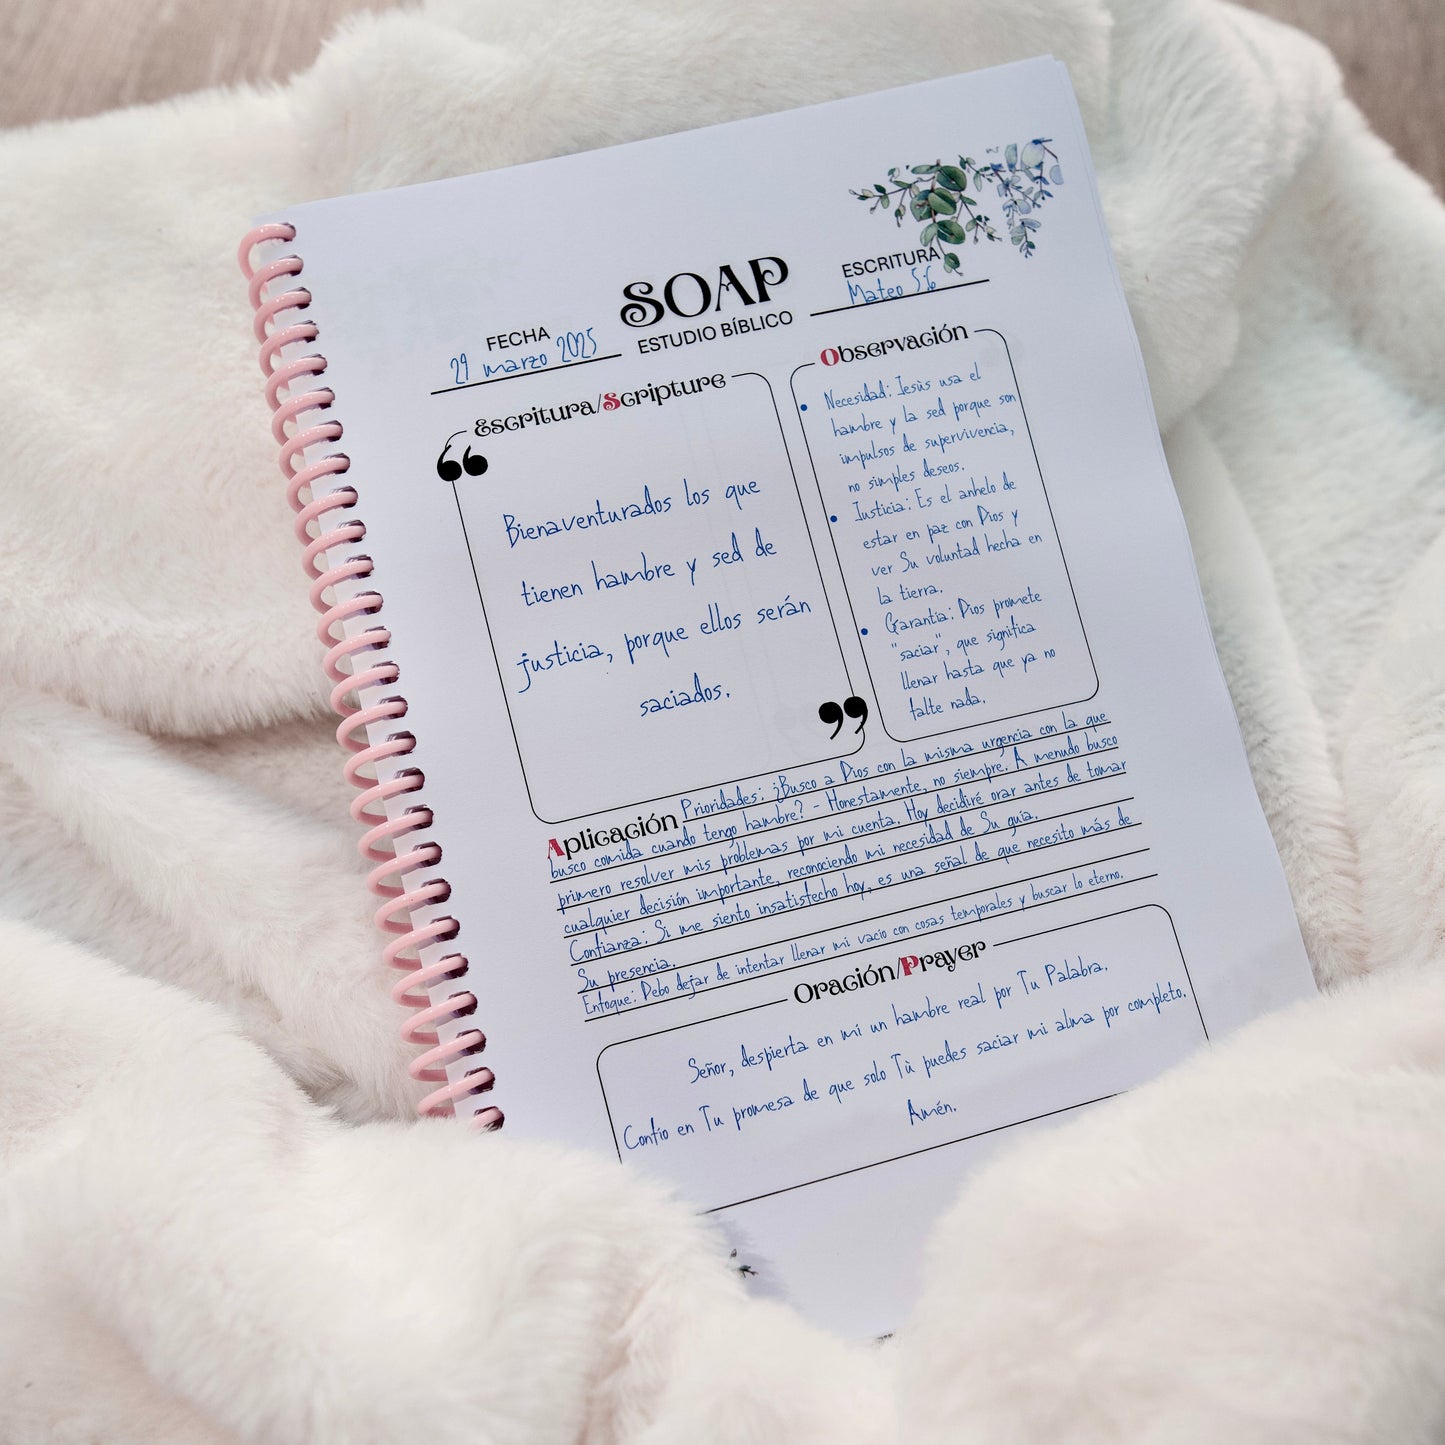 SOAP
ESTUDIO BÍBLICO
FECHA
29 marzo 2025
ESCRITURA
Mateo 5:6
Escritura/Scripture
“
Bienaventurados los que
tienen hambre y sed de
justicia, porque ellos serán
saciados.
”
Observación
• Necesidad: Jesús usa el
hambre y la sed porque son
impulsos de supervivencia,
no simples deseos.
• Justicia: Es el anhelo de
estar en paz con Dios y
ver Su voluntad hecha en
la tierra.
• Garantía: Dios promete
"saciar", que significa
llenar hasta que ya no
falte nada.
Aplicación Prioridades: ¿Busco a Dios con la misma urgencia con la que
busco comida cuando tengo hambre? - Honestamente, no siempre. A menudo busco
primero resolver mis problemas por mi cuenta. Hoy decidiré orar antes de tomar
cualquier decisión importante, reconociendo mi necesidad de Su guía.
Confianza: Si me siento insatisfecho hoy, es una señal de que necesito más de
Su presencia.
Enfoque: Debo dejar de intentar llenar mi vacío con cosas temporales y buscar lo eterno.
Oración/Prayer
Señor, despierta en mí un hambre real por Tu Palabra.
Confío en Tu promesa de que solo Tú puedes saciar mi alma por completo.
Amén.